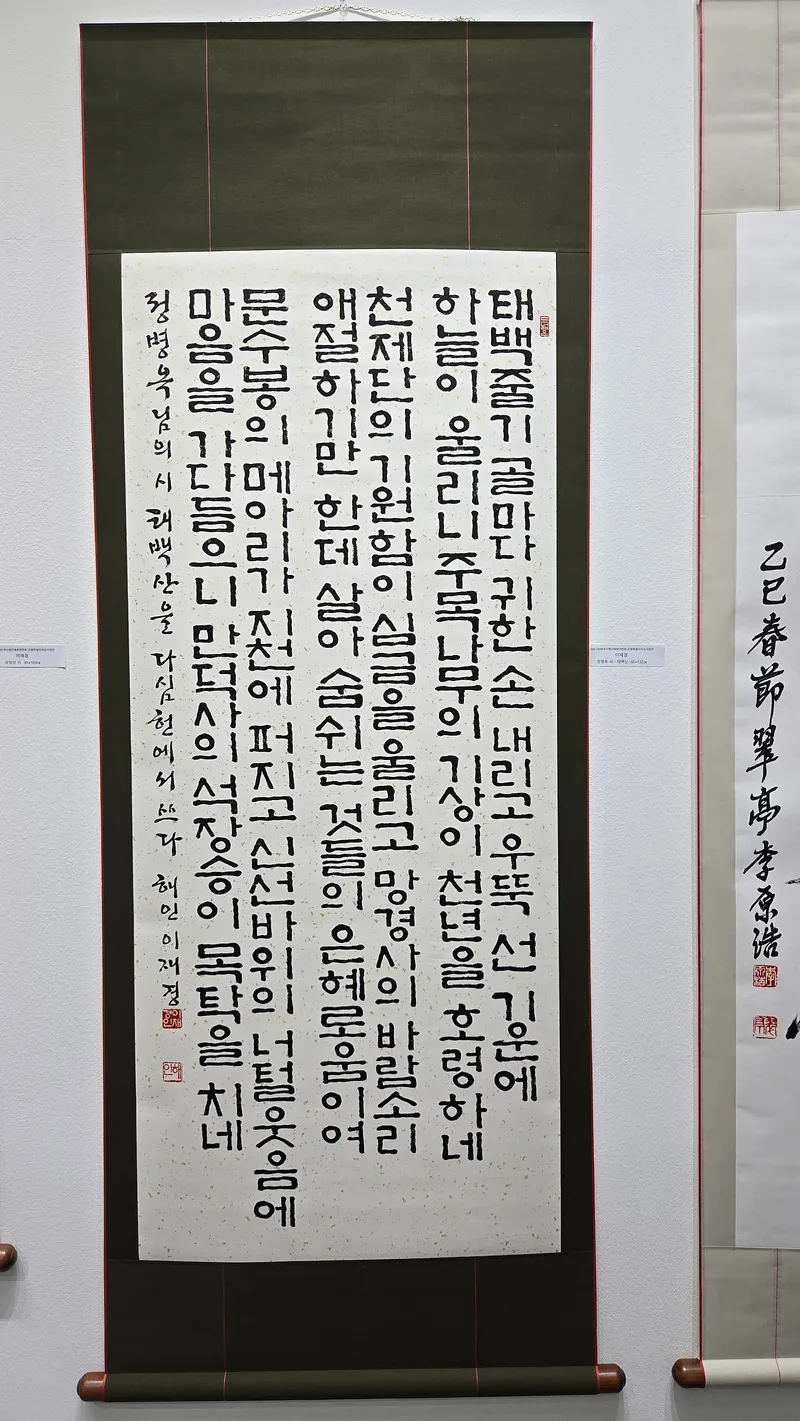 태백줄기 골마다 귀한 손 내리고 우뚝 선 기운에
하늘이 울리니 주목나무의 기상이 천년을 호령하네
천제단의 기원함이 심금을 울리고 망경사의 바람소리
애절하기만 한데 살아 숨쉬는 것들의 은혜로움이여
문수봉의 메아리가 지천에 퍼지고 신선바위의 너털웃음에
마음을 가다듬으니 만덕사의 석장승이 목탁을 치네
정병옥님의 시 태백산을 다심헌에서 쓰다 해인 이재경
이재경
정병옥 시 - 태백산
이재경
乙巳春節翠亭李原浩